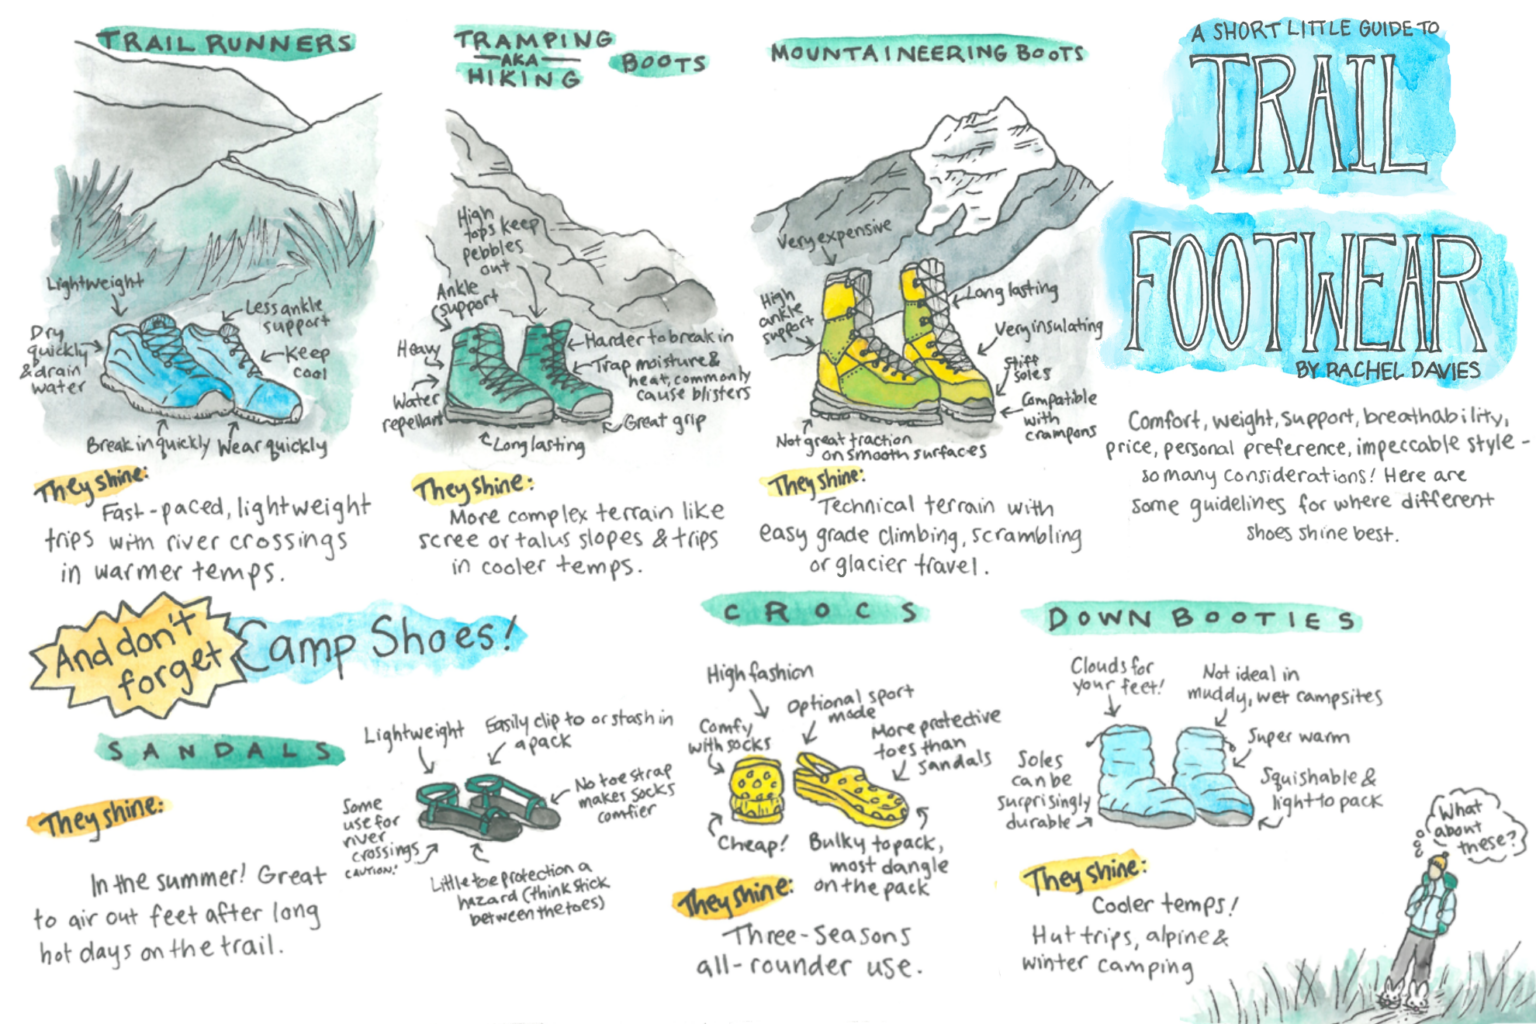 A SHORT LITTLE GUIDE TO
TRAIL
FOOTWEAR
BY RACHEL DAVIES
Comfort, weight, support, breathability,
price, personal preference, impeccable style -
so many considerations! Here are
some guidelines for where different
shoes shine best.
TRAIL RUNNERS
Lightweight
Less ankle
support
Dry
quickly
& drain
water
Keep
cool
Break in quickly
Wear quickly
They shine:
Fast-paced, lightweight
trips with river crossings
in warmer temps.
TRAMPING
AKA
HIKING
BOOTS
High
tops keep
pebbles
out
Ankle
support
Heavy
Water
repellant
Harder to break in
Trap moisture &
heat, commonly
cause blisters
Great grip
Long lasting
They shine:
More complex terrain like
scree or talus slopes & trips
in cooler temps.
MOUNTAINEERING BOOTS
Very expensive
High
ankle
support
Long lasting
Very insulating
Stiff
soles
Compatible
with
crampons
Not great traction
on smooth surfaces
They shine:
Technical terrain with
easy grade climbing, scrambling
or glacier travel.
And don't
forget
Camp Shoes!
SANDALS
Lightweight
Easily clip to or stash in
a pack
No toe strap
makes socks
comfier
Some
use for
river
crossings
CAUTION!
Little toe protection a
hazard (think stick
between the toes)
They shine:
In the summer! Great
to air out feet after long
hot days on the trail.
CROCS
High fashion
Optional sport
mode
Comfy
with socks
More protective
toes than
sandals
Cheap!
Bulky to pack,
most dangle
on the pack
They shine:
Three-seasons
all-rounder use.
DOWN BOOTIES
Clouds for
your feet!
Not ideal in
muddy, wet campsites
Super warm
Soles
can be
surprisingly
durable
Squishable &
light to pack
They shine:
Cooler temps!
Hut trips, alpine &
winter camping
What
about
these?